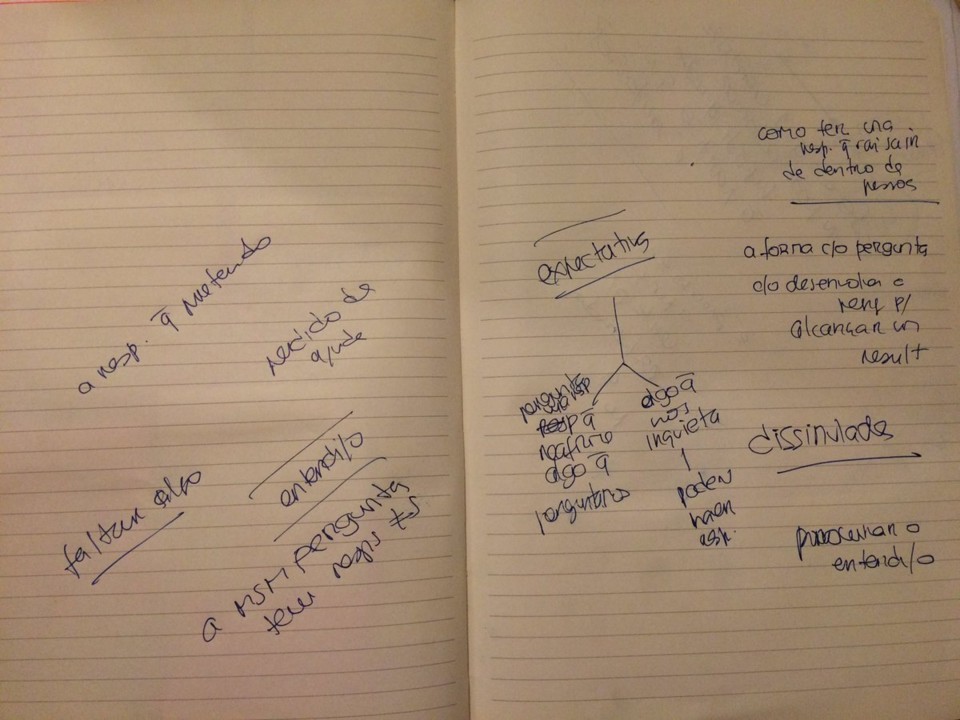 a resp. q̄ pretendo
pedido de
ajuda
faltar algo
entendi/o
a msm pergunta
tem resps ≠s
como ter una
resp. q̄ vai sair
de dentro de
expectativs
pergunta
resp q̄
reafirme
algo q̄
perguntamos
algo q̄
nos
inquieta
podem
haver
esp.
a forma c/o pergunta
c/o desenvolve a
resp p/
alcançar un
result
dissimulada
entendi/o